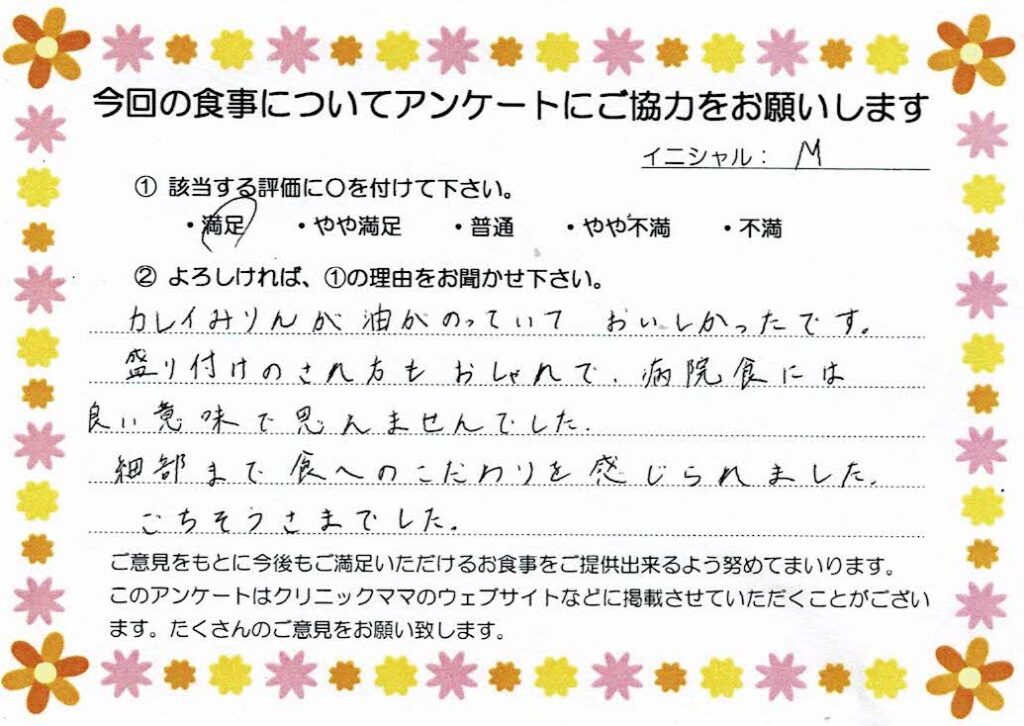 今回の食事についてアンケートにご協力をお願いします
イニシャル： M
① 該当する評価に○を付けて下さい。
・満足 ・やや満足 ・普通 ・やや不満 ・不満
② よろしければ、①の理由をお聞かせ下さい。
カレイみりんが油がのっていて おいしかったです。
盛り付けのされ方もおしゃれで、病院食には
良い意味で思えませんでした。
細部まで食へのこだわりを感じられました。
ごちそうさまでした。
ご意見をもとに今後もご満足いただけるお食事をご提供出来るよう努めてまいります。
このアンケートはクリニックママのウェブサイトなどに掲載させていただくことがござい
ます。たくさんのご意見をお願い致します。